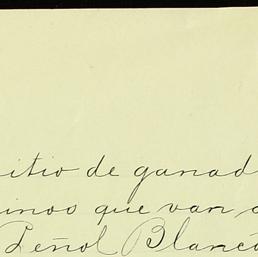 itio de ganad
inos que van a
Peñol Blanco